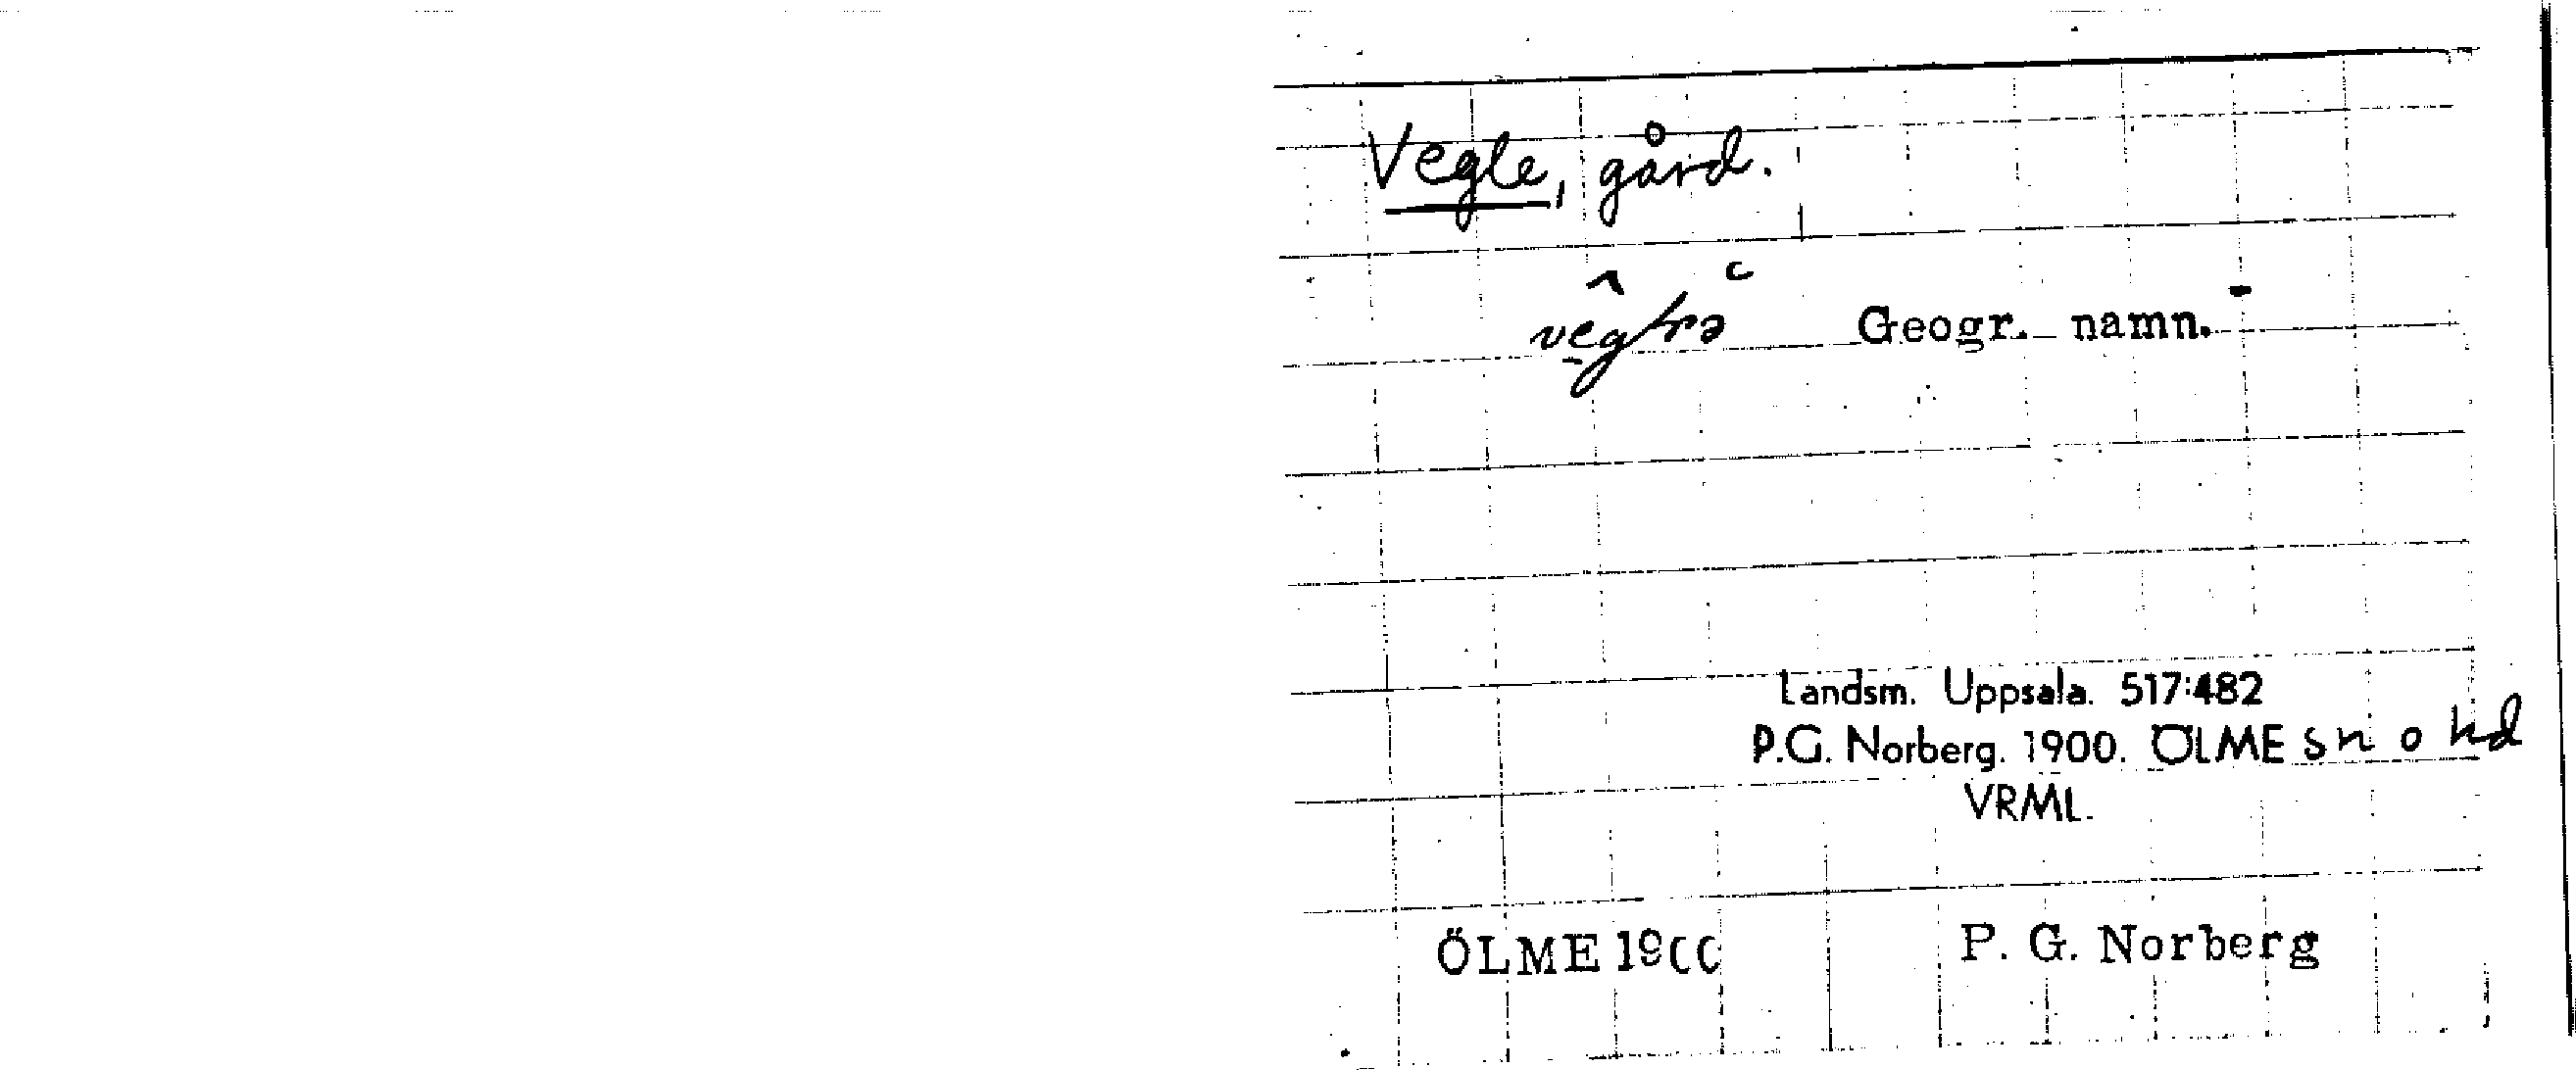 Vegle, gård.
Geogr. namn.
Landsm. Uppsala. 517:482
P.G. Norberg. 1900. ÖLME sn o hd
VRML.
ÖLME 1900 P. G. Norberg